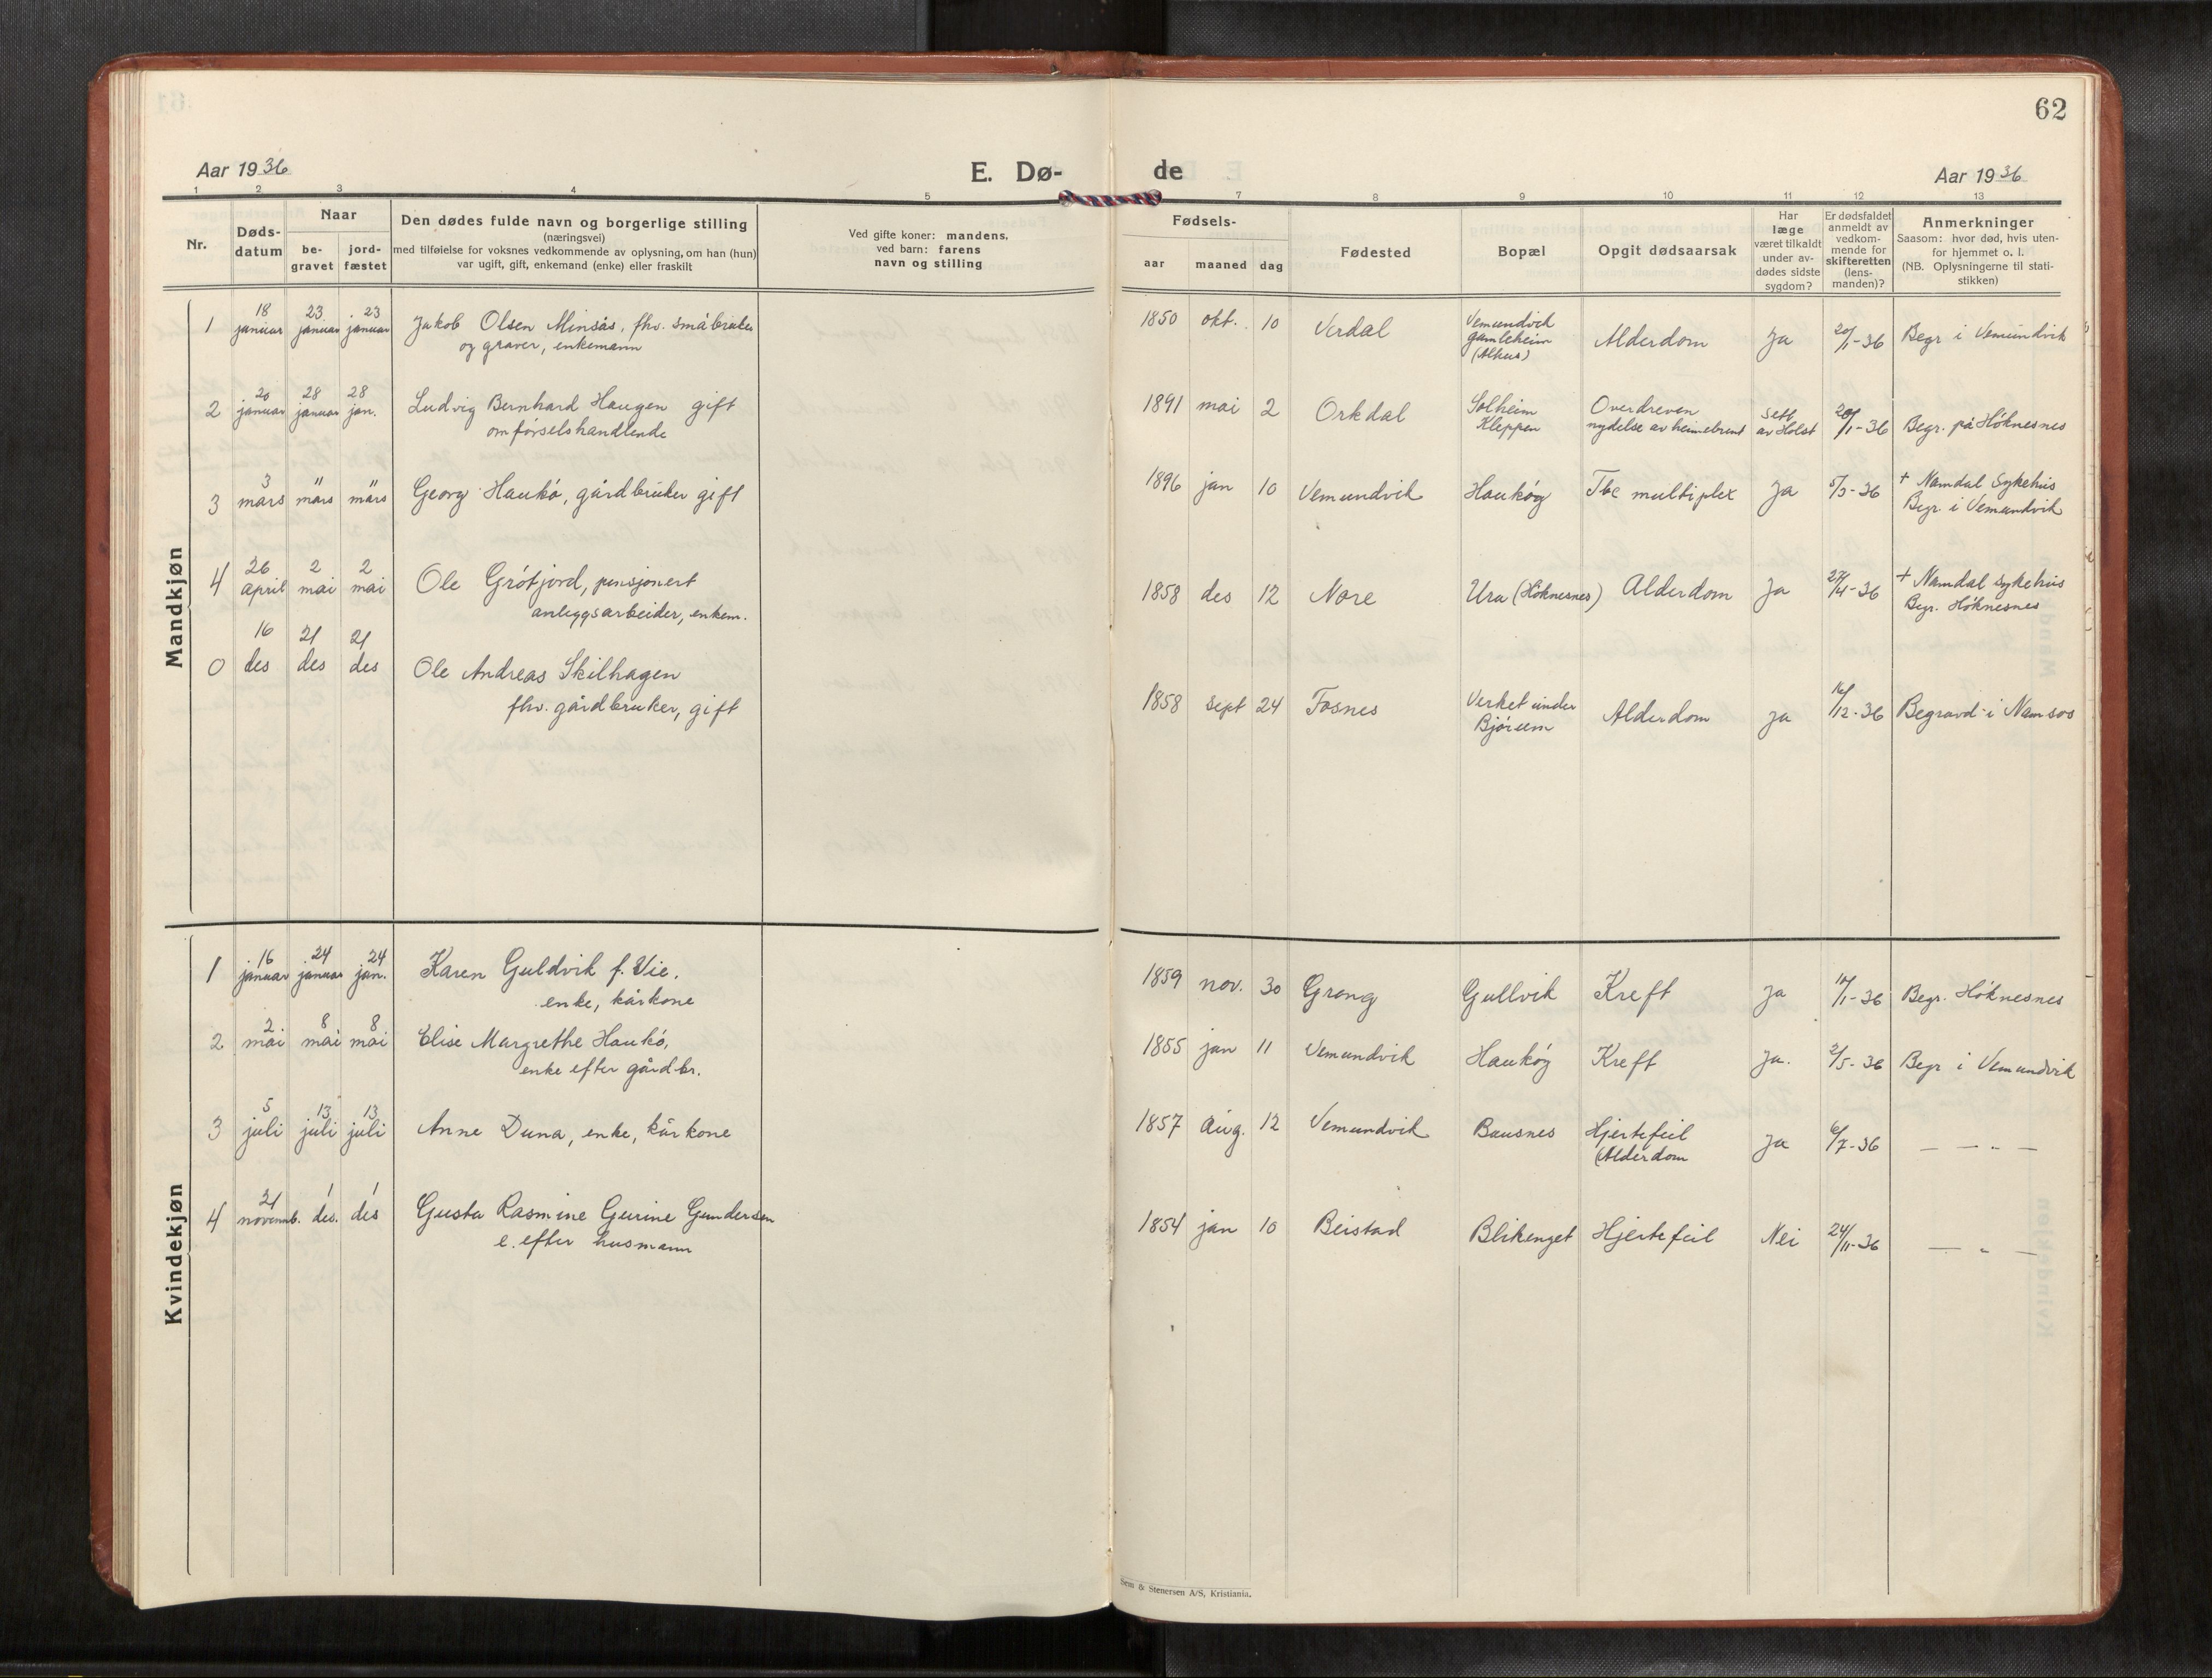 62
Aar 1936
E. Dø-
de
Aar 1936
1 2 3 4 5 7 8 9 10 11 12 13
Nr.
Døds-
datum
Naar
be-
gravet
jord-
fæstet
Den dødes fulde navn og borgerlige stilling
(næringsvei)
med tilføielse for voksnes vedkommende av oplysning, om han (hun)
var ugift, gift, enkemand (enke) eller fraskilt
Ved gifte koner: mandens.
ved barn: farens
navn og stilling
Fødsels-
aar maaned dag
Fødested
Bopæl
Opgit dødsaarsak
Har
læge
været tilkaldt
under av-
dødes sidste
sygdom?
Er dødsfaldet
anmeldt av
vedkom-
mende for
skifteretten
(lens-
manden)?
Anmerkninger
Saasom: hvor død, hvis uten-
for hjemmet o. l.
(NB. Oplysningerne til stati-
stikken)
Mandkjøn
1 18 januar 23 januar 23 januar Jakob Olsen Minsås, fhv. småbruker
og graver, enkemann
1850 okt. 10 Verdal Vemundvik
gamleheim
(Alhus)
Alderdom Ja 20/1-36 Begr i Vemundvik
2 20 januar 28 januar 28 jan. Ludvig Bernhard Haugen gift
omførselshandlende
1891 mai 2 Orkdal Solheim
Kleppen
Overdreven
nydelse av heimebrent
sett
av Holst
20/1-36 Begr. på Høknesnes
3 3 mars " mars " mars Georg Haukø, gårdbruker gift
1896 jan 10 Vemundvik Haukøy Tbc multiplex Ja 5/3-36 + Namdal Sykehus
Begr. i Vemundvik
4 26 april 2 mai 2 mai Ole Grøtfjord, pensjonert
anleggsarbeider, enkem.
1858 des 12 Nore Ura (Høknesnes) Alderdom Ja 27/4-36 + Namdal sykehus
Begr. Høknesnes
0 16 des 21 des 21 des Ole Andreas Skilhagen
fhv. gårdbruker, gift
1858 sept 24 Fosnes Verket under
Bjørum
Alderdom Ja 16/12-36 Begravd i Namsos
Kvindekjøn
1 16 januar 24 januar 24 jan. Karen Guldvik f. Vie.
enke, kårkone
1859 nov. 30 Grong Gullvik Kreft Ja 17/1-36 Begr. Høknesnes
2 2. mai 8 mai 8 mai Elise Margrethe Haukø,
enke efter gårdbr.
1855 jan 11 Vemundvik Haukøy Kreft Ja. 2/5-36 Begr i Vemundvik
3 5 juli 13 juli 13 juli Anne Duna, enke, kårkone
1857 aug. 12 Vemundvik Bausnes Hjertefeil
(Alderdom
Ja 6/7-36 — — " —
4 21 novemb. 1 des. 1 des Gusta Rasmine Gurine Gundersen
e. efter husmann
1854 jan 10 Beistad Blikenget Hjertefeil Nei 24/11-36 — " —
Sem & Stenersen A/S, Kristiania.